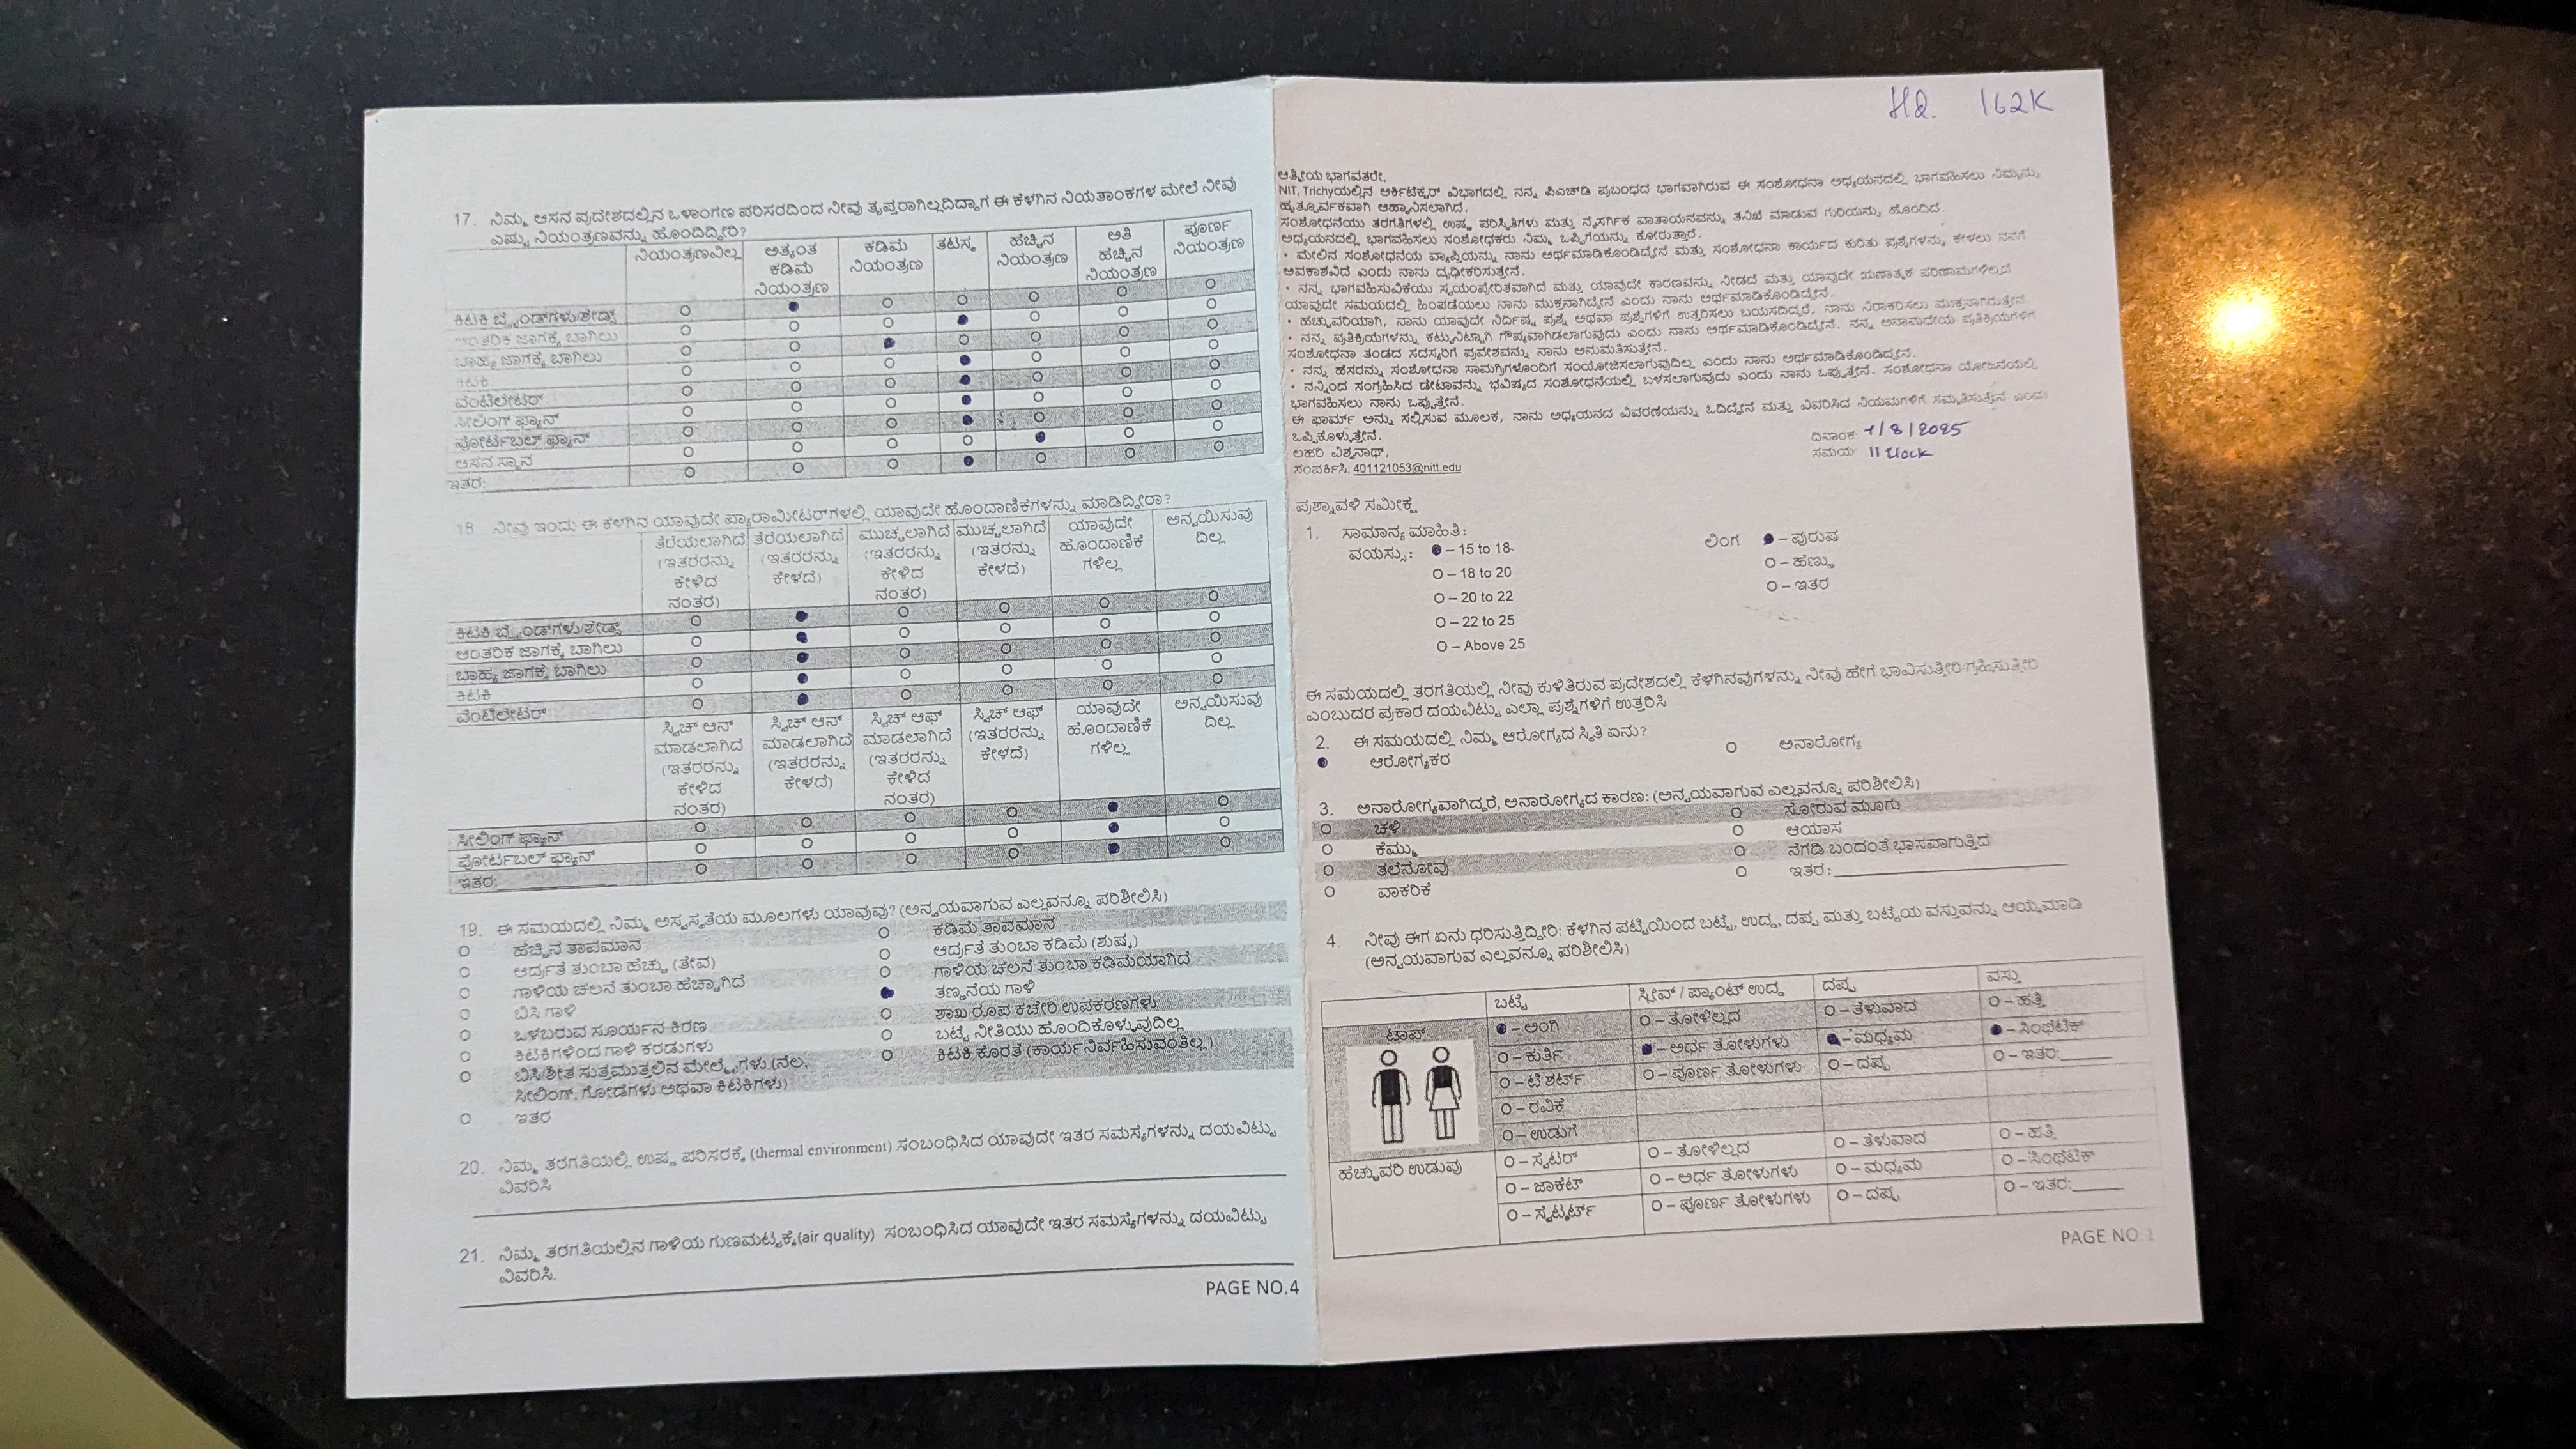 17. ನಿಮ್ಮ ಆಸನ ಪ್ರದೇಶದಲ್ಲಿನ ಒಳಾಂಗಣ ಪರಿಸರದಿಂದ ನೀವು ತೃಪ್ತರಾಗಿಲ್ಲದಿದ್ದಾಗ ಈ ಕೆಳಗಿನ ನಿಯತಾಂಕಗಳ ಮೇಲೆ ನೀವು
ಎಷ್ಟು ನಿಯಂತ್ರಣವನ್ನು ಹೊಂದಿದ್ದೀರಿ?
ನಿಯಂತ್ರಣವಿಲ್ಲ ಅತ್ಯಂತ ಕಡಿಮೆ ನಿಯಂತ್ರಣ ಕಡಿಮೆ ನಿಯಂತ್ರಣ ತಟಸ್ಥ ಹೆಚ್ಚಿನ ನಿಯಂತ್ರಣ ಅತಿ ಹೆಚ್ಚಿನ ನಿಯಂತ್ರಣ ಪೂರ್ಣ ನಿಯಂತ್ರಣ
ಕಿಟಕಿ ಬ್ಲೈಂಡ್‌ಗಳು/ಶೇಡ್ಸ್
ಆಂತರಿಕ ಜಾಗಕ್ಕೆ ಬಾಗಿಲು
ಬಾಹ್ಯ ಜಾಗಕ್ಕೆ ಬಾಗಿಲು
ಕಿಟಕಿ
ವೆಂಟಿಲೇಟರ್
ಸೀಲಿಂಗ್ ಫ್ಯಾನ್
ಪೋರ್ಟಬಲ್ ಫ್ಯಾನ್
ಆಸನ ಸ್ಥಾನ
ಇತರ:
18 ನೀವು ಇಂದು ಈ ಕೆಳಗಿನ ಯಾವುದೇ ಪ್ಯಾರಾಮೀಟರ್‌ಗಳಲ್ಲಿ ಯಾವುದೇ ಹೊಂದಾಣಿಕೆಗಳನ್ನು ಮಾಡಿದ್ದೀರಾ?
ತೆರೆಯಲಾಗಿದೆ (ಇತರರನ್ನು ಕೇಳಿದ ನಂತರ) ತೆರೆಯಲಾಗಿದೆ (ಇತರರನ್ನು ಕೇಳದೆ) ಮುಚ್ಚಲಾಗಿದೆ (ಇತರರನ್ನು ಕೇಳಿದ ನಂತರ) ಮುಚ್ಚಲಾಗಿದೆ (ಇತರರನ್ನು ಕೇಳದೆ) ಯಾವುದೇ ಹೊಂದಾಣಿಕೆ ಗಳಿಲ್ಲ ಅನ್ವಯಿಸುವು ದಿಲ್ಲ
ಕಿಟಕಿ ಬ್ಲೈಂಡ್‌ಗಳು/ಶೇಡ್ಸ್
ಆಂತರಿಕ ಜಾಗಕ್ಕೆ ಬಾಗಿಲು
ಬಾಹ್ಯ ಜಾಗಕ್ಕೆ ಬಾಗಿಲು
ಕಿಟಕಿ
ವೆಂಟಿಲೇಟರ್
ಸ್ವಿಚ್ ಆನ್ ಮಾಡಲಾಗಿದೆ (ಇತರರನ್ನು ಕೇಳಿದ ನಂತರ) ಸ್ವಿಚ್ ಆನ್ ಮಾಡಲಾಗಿದೆ (ಇತರರನ್ನು ಕೇಳದೆ) ಸ್ವಿಚ್ ಆಫ್ ಮಾಡಲಾಗಿದೆ (ಇತರರನ್ನು ಕೇಳಿದ ನಂತರ) ಸ್ವಿಚ್ ಆಫ್ (ಇತರರನ್ನು ಕೇಳದೆ) ಯಾವುದೇ ಹೊಂದಾಣಿಕೆ ಗಳಿಲ್ಲ ಅನ್ವಯಿಸುವು ದಿಲ್ಲ
ಸೀಲಿಂಗ್ ಫ್ಯಾನ್
ಪೋರ್ಟಬಲ್ ಫ್ಯಾನ್
ಇತರ:
19. ಈ ಸಮಯದಲ್ಲಿ ನಿಮ್ಮ ಅಸ್ವಸ್ಥತೆಯ ಮೂಲಗಳು ಯಾವುವು? (ಅನ್ವಯವಾಗುವ ಎಲ್ಲವನ್ನೂ ಪರಿಶೀಲಿಸಿ)
ಹೆಚ್ಚಿನ ತಾಪಮಾನ ಕಡಿಮೆ ತಾಪಮಾನ
ಆರ್ದ್ರತೆ ತುಂಬಾ ಹೆಚ್ಚು (ತೇವ) ಆರ್ದ್ರತೆ ತುಂಬಾ ಕಡಿಮೆ (ಶುಷ್ಕ)
ಗಾಳಿಯ ಚಲನೆ ತುಂಬಾ ಹೆಚ್ಚಾಗಿದೆ ಗಾಳಿಯ ಚಲನೆ ತುಂಬಾ ಕಡಿಮೆಯಾಗಿದೆ
ಬಿಸಿ ಗಾಳಿ ತಣ್ಣನೆಯ ಗಾಳಿ
ಒಳಬರುವ ಸೂರ್ಯನ ಕಿರಣ ಶಾಖ ರೂಪ ಕಚೇರಿ ಉಪಕರಣಗಳು
ಕಿಟಕಿಗಳಿಂದ ಗಾಳಿ ಕರಡುಗಳು ಬಟ್ಟೆ ನೀತಿಯು ಹೊಂದಿಕೊಳ್ಳುವುದಿಲ್ಲ
ಬಿಸಿ/ಶೀತ ಸುತ್ತಮುತ್ತಲಿನ ಮೇಲ್ಮೈಗಳು (ನೆಲ, ಕಿಟಕಿ ಕೊರತೆ (ಕಾರ್ಯನಿರ್ವಹಿಸುವಂತಿಲ್ಲ)
ಸೀಲಿಂಗ್, ಗೋಡೆಗಳು ಅಥವಾ ಕಿಟಕಿಗಳು)
ಇತರ
20. ನಿಮ್ಮ ತರಗತಿಯಲ್ಲಿ ಉಷ್ಣ ಪರಿಸರಕ್ಕೆ (thermal environment) ಸಂಬಂಧಿಸಿದ ಯಾವುದೇ ಇತರ ಸಮಸ್ಯೆಗಳನ್ನು ದಯವಿಟ್ಟು
ವಿವರಿಸಿ
21. ನಿಮ್ಮ ತರಗತಿಯಲ್ಲಿನ ಗಾಳಿಯ ಗುಣಮಟ್ಟಕ್ಕೆ(air quality) ಸಂಬಂಧಿಸಿದ ಯಾವುದೇ ಇತರ ಸಮಸ್ಯೆಗಳನ್ನು ದಯವಿಟ್ಟು
ವಿವರಿಸಿ.
PAGE NO.4
HQ. 162K
ಆತ್ಮೀಯ ಭಾಗವತರೇ,
NIT, Trichyಯಲ್ಲಿನ ಆರ್ಕಿಟೆಕ್ಚರ್ ವಿಭಾಗದಲ್ಲಿ ನನ್ನ ಪಿಎಚ್‌ಡಿ ಪ್ರಬಂಧದ ಭಾಗವಾಗಿರುವ ಈ ಸಂಶೋಧನಾ ಅಧ್ಯಯನದಲ್ಲಿ ಭಾಗವಹಿಸಲು ನಿಮ್ಮನ್ನು
ಹೃತ್ಪೂರ್ವಕವಾಗಿ ಆಹ್ವಾನಿಸಲಾಗಿದೆ.
ಸಂಶೋಧನೆಯು ತರಗತಿಗಳಲ್ಲಿ ಉಷ್ಣ ಪರಿಸ್ಥಿತಿಗಳು ಮತ್ತು ನೈಸರ್ಗಿಕ ವಾತಾಯನವನ್ನು ತನಿಖೆ ಮಾಡುವ ಗುರಿಯನ್ನು ಹೊಂದಿದೆ.
ಅಧ್ಯಯನದಲ್ಲಿ ಭಾಗವಹಿಸಲು ಸಂಶೋಧಕರು ನಿಮ್ಮ ಒಪ್ಪಿಗೆಯನ್ನು ಕೋರುತ್ತಾರೆ.
• ಮೇಲಿನ ಸಂಶೋಧನೆಯ ವ್ಯಾಪ್ತಿಯನ್ನು ನಾನು ಅರ್ಥಮಾಡಿಕೊಂಡಿದ್ದೇನೆ ಮತ್ತು ಸಂಶೋಧನಾ ಕಾರ್ಯದ ಕುರಿತು ಪ್ರಶ್ನೆಗಳನ್ನು ಕೇಳಲು ನನಗೆ
ಅವಕಾಶವಿದೆ ಎಂದು ನಾನು ದೃಢೀಕರಿಸುತ್ತೇನೆ.
• ನನ್ನ ಭಾಗವಹಿಸುವಿಕೆಯು ಸ್ವಯಂಪ್ರೇರಿತವಾಗಿದೆ ಮತ್ತು ಯಾವುದೇ ಕಾರಣವನ್ನು ನೀಡದೆ ಮತ್ತು ಯಾವುದೇ ಋಣಾತ್ಮಕ ಪರಿಣಾಮಗಳಿಲ್ಲದೆ
ಯಾವುದೇ ಸಮಯದಲ್ಲಿ ಹಿಂಪಡೆಯಲು ನಾನು ಮುಕ್ತನಾಗಿದ್ದೇನೆ ಎಂದು ನಾನು ಅರ್ಥಮಾಡಿಕೊಂಡಿದ್ದೇನೆ.
• ಹೆಚ್ಚುವರಿಯಾಗಿ, ನಾನು ಯಾವುದೇ ನಿರ್ದಿಷ್ಟ ಪ್ರಶ್ನೆ ಅಥವಾ ಪ್ರಶ್ನೆಗಳಿಗೆ ಉತ್ತರಿಸಲು ಬಯಸದಿದ್ದರೆ, ನಾನು ನಿರಾಕರಿಸಲು ಮುಕ್ತನಾಗಿರುತ್ತೇನೆ
• ನನ್ನ ಪ್ರತಿಕ್ರಿಯೆಗಳನ್ನು ಕಟ್ಟುನಿಟ್ಟಾಗಿ ಗೌಪ್ಯವಾಗಿಡಲಾಗುವುದು ಎಂದು ನಾನು ಅರ್ಥಮಾಡಿಕೊಂಡಿದ್ದೇನೆ. ನನ್ನ ಅನಾಮಧೇಯ ಪ್ರತಿಕ್ರಿಯೆಗಳಿಗೆ
ಸಂಶೋಧನಾ ತಂಡದ ಸದಸ್ಯರಿಗೆ ಪ್ರವೇಶವನ್ನು ನಾನು ಅನುಮತಿಸುತ್ತೇನೆ.
• ನನ್ನ ಹೆಸರನ್ನು ಸಂಶೋಧನಾ ಸಾಮಗ್ರಿಗಳೊಂದಿಗೆ ಸಂಯೋಜಿಸಲಾಗುವುದಿಲ್ಲ ಎಂದು ನಾನು ಅರ್ಥಮಾಡಿಕೊಂಡಿದ್ದೇನೆ.
• ನನ್ನಿಂದ ಸಂಗ್ರಹಿಸಿದ ಡೇಟಾವನ್ನು ಭವಿಷ್ಯದ ಸಂಶೋಧನೆಯಲ್ಲಿ ಬಳಸಲಾಗುವುದು ಎಂದು ನಾನು ಒಪ್ಪುತ್ತೇನೆ. ಸಂಶೋಧನಾ ಯೋಜನೆಯಲ್ಲಿ
ಭಾಗವಹಿಸಲು ನಾನು ಒಪ್ಪುತ್ತೇನೆ.
ಈ ಫಾರ್ಮ್ ಅನ್ನು ಸಲ್ಲಿಸುವ ಮೂಲಕ, ನಾನು ಅಧ್ಯಯನದ ವಿವರಣೆಯನ್ನು ಓದಿದ್ದೇನೆ ಮತ್ತು ವಿವರಿಸಿದ ನಿಯಮಗಳಿಗೆ ಸಮ್ಮತಿಸುತ್ತೇನೆ ಎಂದು
ಒಪ್ಪಿಕೊಳ್ಳುತ್ತೇನೆ.
ಲಹರಿ ವಿಶ್ವನಾಥ್,
ಸಂಪರ್ಕಿಸಿ: 401121053@nitt.edu
ದಿನಾಂಕ: 1/8/2025
ಸಮಯ: 11 Clock
ಪ್ರಶ್ನಾವಳಿ ಸಮೀಕ್ಷೆ
1. ಸಾಮಾನ್ಯ ಮಾಹಿತಿ:
ವಯಸ್ಸು: – 15 to 18 ಲಿಂಗ – ಪುರುಷ
O – 18 to 20 O – ಹೆಣ್ಣು
O – 20 to 22 O – ಇತರ
O – 22 to 25
O – Above 25
ಈ ಸಮಯದಲ್ಲಿ ತರಗತಿಯಲ್ಲಿ ನೀವು ಕುಳಿತಿರುವ ಪ್ರದೇಶದಲ್ಲಿ ಕೆಳಗಿನವುಗಳನ್ನು ನೀವು ಹೇಗೆ ಭಾವಿಸುತ್ತೀರಿ/ಗ್ರಹಿಸುತ್ತೀರಿ
ಎಂಬುದರ ಪ್ರಕಾರ ದಯವಿಟ್ಟು ಎಲ್ಲಾ ಪ್ರಶ್ನೆಗಳಿಗೆ ಉತ್ತರಿಸಿ
2. ಈ ಸಮಯದಲ್ಲಿ ನಿಮ್ಮ ಆರೋಗ್ಯದ ಸ್ಥಿತಿ ಏನು?
ಆರೋಗ್ಯಕರ O ಅನಾರೋಗ್ಯ
3. ಅನಾರೋಗ್ಯವಾಗಿದ್ದರೆ, ಅನಾರೋಗ್ಯದ ಕಾರಣ: (ಅನ್ವಯವಾಗುವ ಎಲ್ಲವನ್ನೂ ಪರಿಶೀಲಿಸಿ)
O ಚಳಿ O ಸೋರುವ ಮೂಗು
O ಕೆಮ್ಮು O ಆಯಾಸ
O ತಲೆನೋವು O ನೆಗಡಿ ಬಂದಂತೆ ಭಾಸವಾಗುತ್ತಿದೆ
O ವಾಕರಿಕೆ O ಇತರ:
4. ನೀವು ಈಗ ಏನು ಧರಿಸುತ್ತಿದ್ದೀರಿ: ಕೆಳಗಿನ ಪಟ್ಟಿಯಿಂದ ಬಟ್ಟೆ, ಉದ್ದ, ದಪ್ಪ ಮತ್ತು ಬಟ್ಟೆಯ ವಸ್ತುವನ್ನು ಆಯ್ಕೆಮಾಡಿ
(ಅನ್ವಯವಾಗುವ ಎಲ್ಲವನ್ನೂ ಪರಿಶೀಲಿಸಿ)
ಬಟ್ಟೆ ಸ್ಲೀವ್ / ಪ್ಯಾಂಟ್ ಉದ್ದ ದಪ್ಪ ವಸ್ತು
ಟಾಪ್ – ಅಂಗಿ O – ತೋಳಿಲ್ಲದ O – ತೆಳುವಾದ O – ಹತ್ತಿ
O – ಕುರ್ತಿ – ಅರ್ಧ ತೋಳುಗಳು – ಮಧ್ಯಮ – ಸಿಂಥೆಟಿಕ್
O – ಟಿ ಶರ್ಟ್ O – ಪೂರ್ಣ ತೋಳುಗಳು O – ದಪ್ಪ O – ಇತರ:
O – ರವಿಕೆ
O – ಉಡುಗೆ
ಹೆಚ್ಚುವರಿ ಉಡುಪು O – ಸ್ವೆಟರ್ O – ತೋಳಿಲ್ಲದ O – ತೆಳುವಾದ O – ಹತ್ತಿ
O – ಜಾಕೆಟ್ O – ಅರ್ಧ ತೋಳುಗಳು O – ಮಧ್ಯಮ O – ಸಿಂಥೆಟಿಕ್
O – ಸ್ವೆಟ್ಶರ್ಟ್ O – ಪೂರ್ಣ ತೋಳುಗಳು O – ದಪ್ಪ O – ಇತರ:
PAGE NO.1